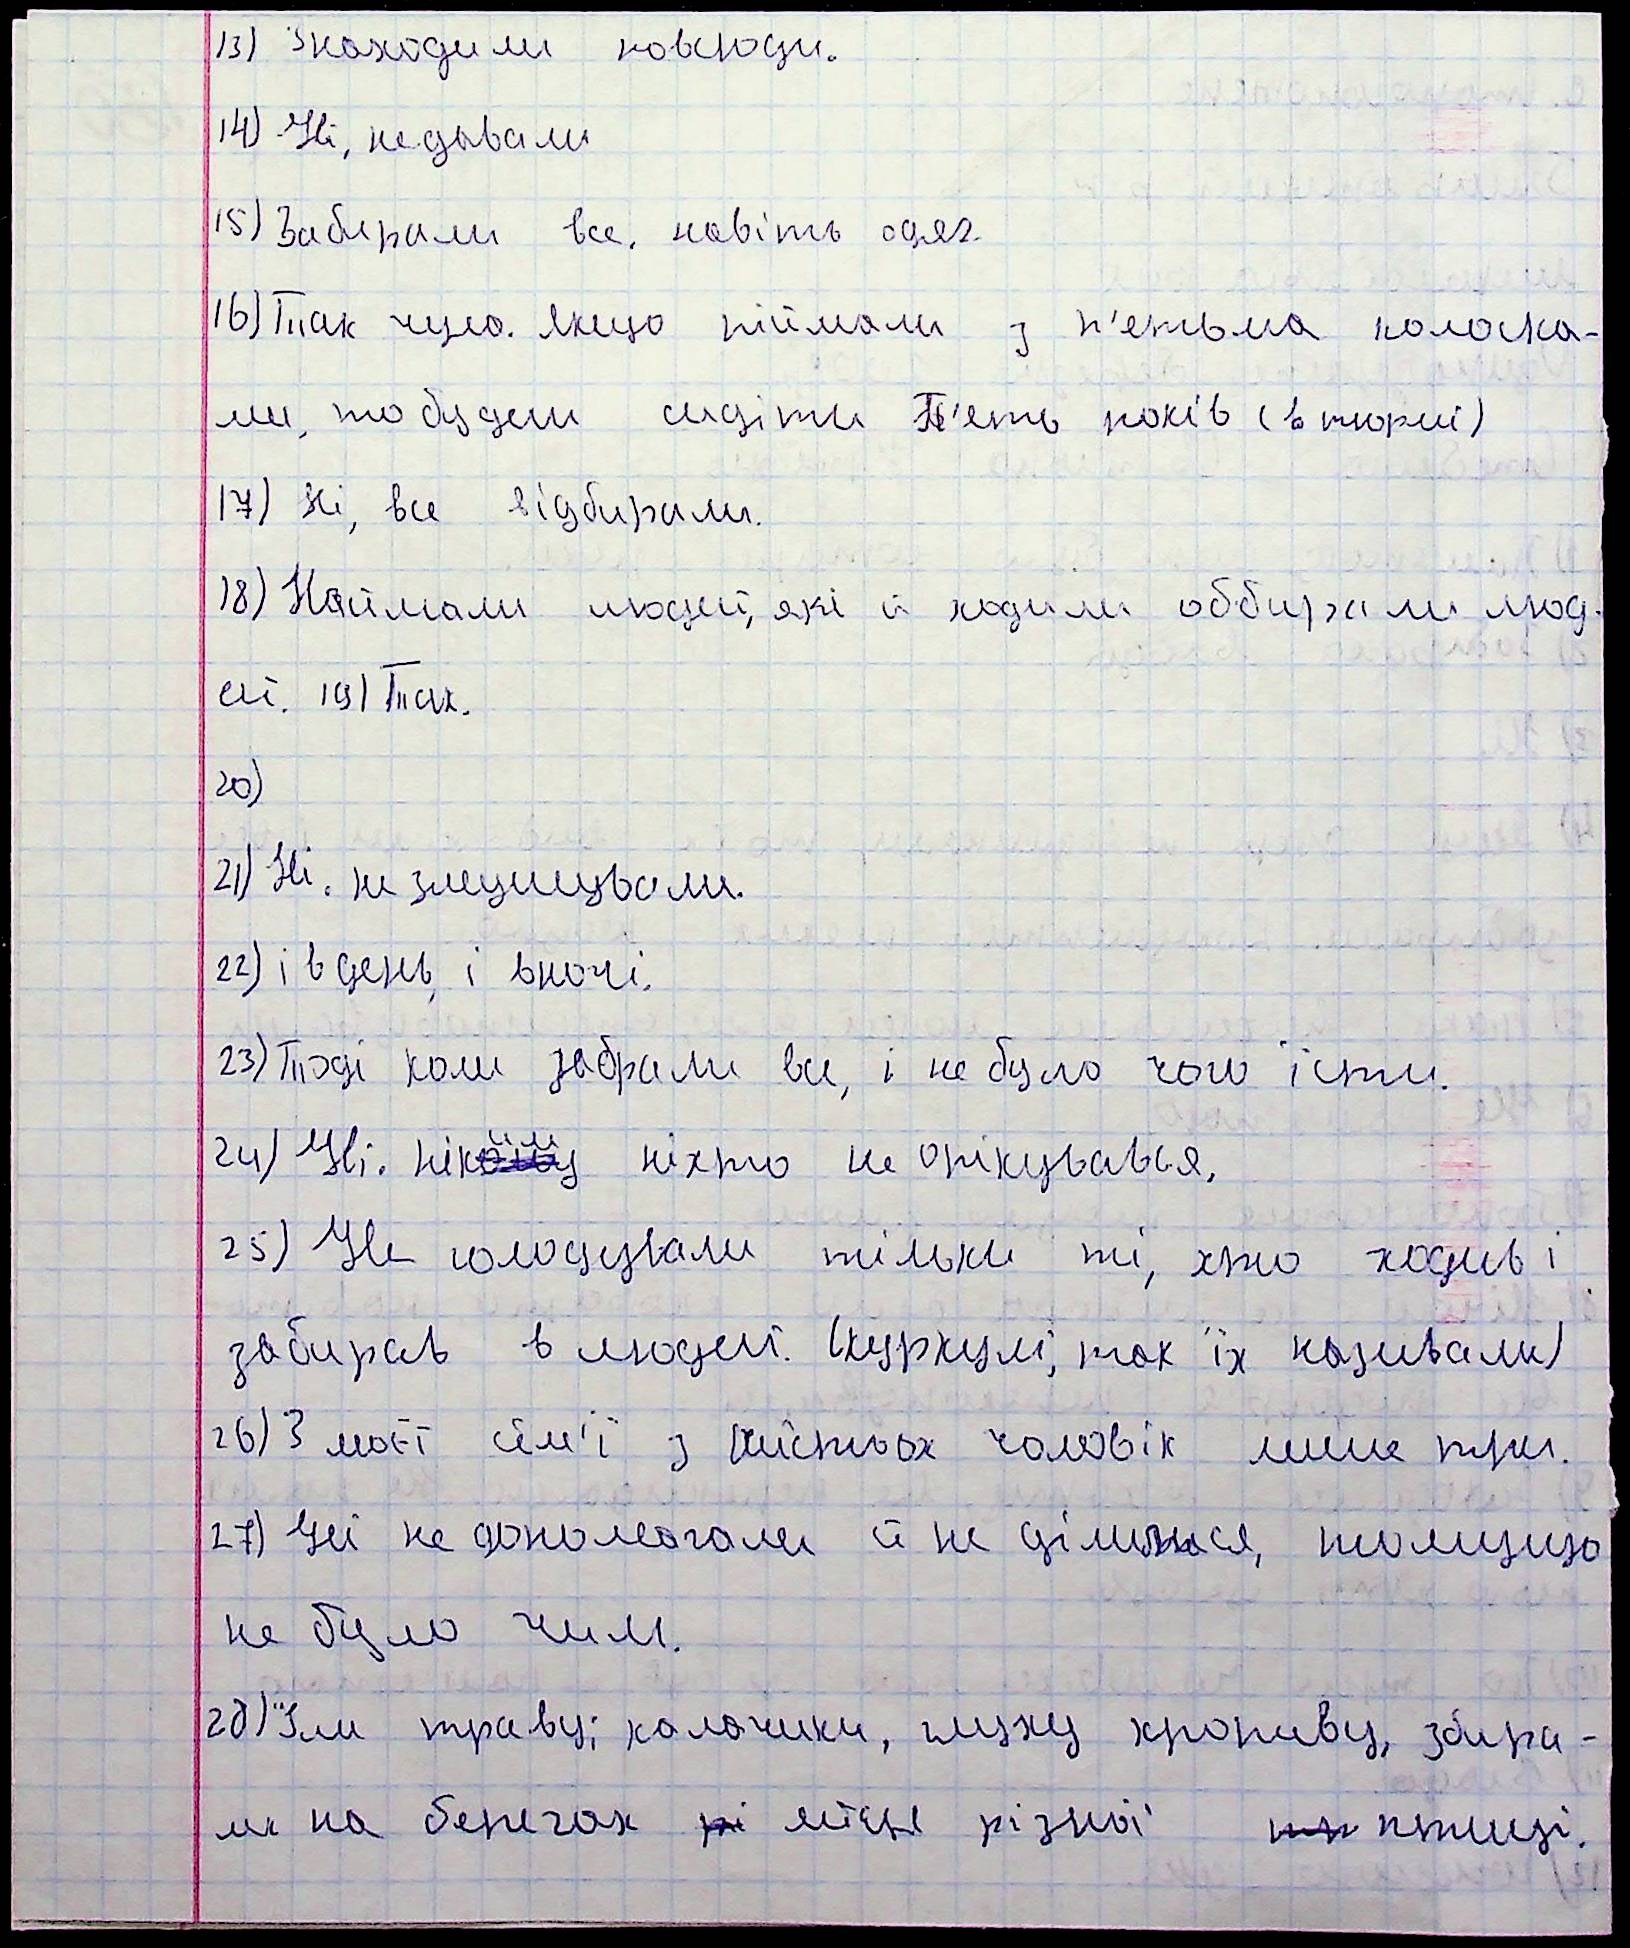 13) Знаходили повсюди.
14) Ні, не давали
15) Забирали все. навіть одяг.
16) Так чула. Якщо піймали з п'ятьма колоска-
ми, то будеш сидіти п'ять років (в тюрмі)
17) Ні, все відбирали.
18) Наймали людей, які й ходили оббирали люд-
ей. 19) Так.
20)
21) Ні. не змушували.
22) і в день, і вночі.
23) Тоді коли забрали все, і не було чого їсти.
24) Ні. ніким ніхто не опікувався.
25) Не голодували тільки ті, хто ходив і
забирав в людей. (куркулі, так їх називали)
26) З моєї сім'ї з шістьох чоловік лише три.
27) Ні не допомагали й не ділилися, томущо
не було чим.
28) Їли траву; калачики, глуху кропиву, збира-
ли на берегах яйця різної птиці.